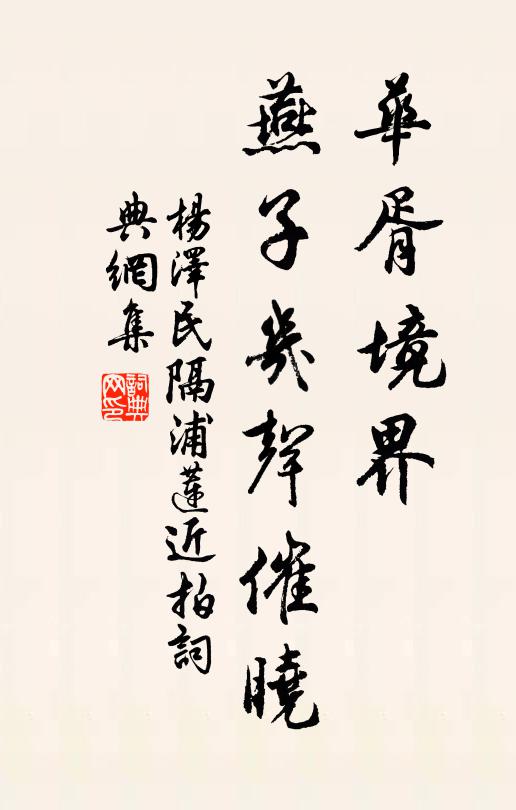 華胥境界
燕子幾聲催曉
楊澤民隔浦蓮近拍詞
典網集
詞典網印